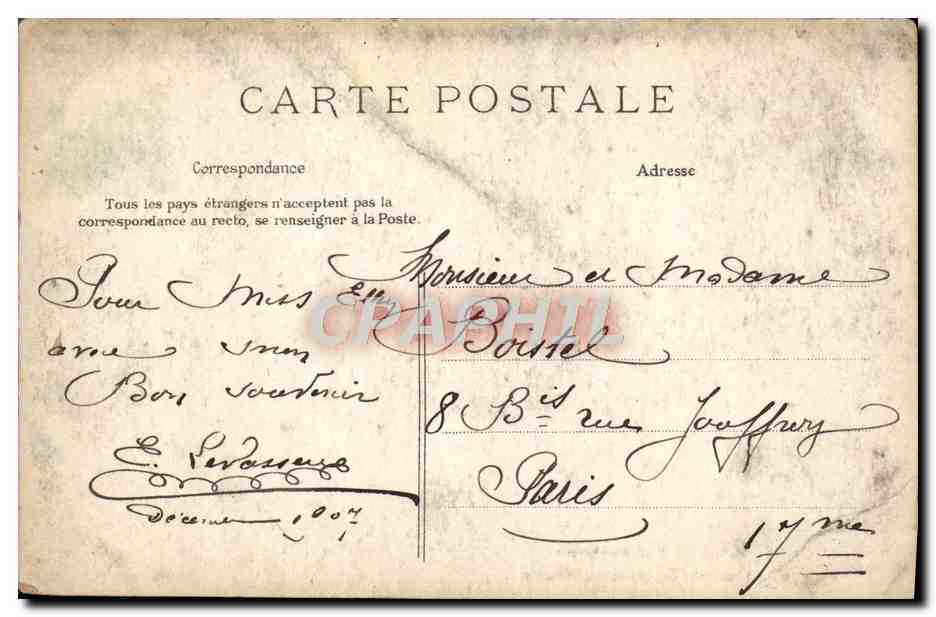 CARTE POSTALE
Correspondance
Tous les pays étrangers n'acceptent pas la
correspondance au recto, se renseigner à la Poste.
Pour Miss Elly
avec mon
Bon souvenir
E. Levasseur
Décembre 1907
Adresse
Monsieur et Madame
Boissel
8 Bis rue Jouffroy
Paris
17me
CPAPHIL